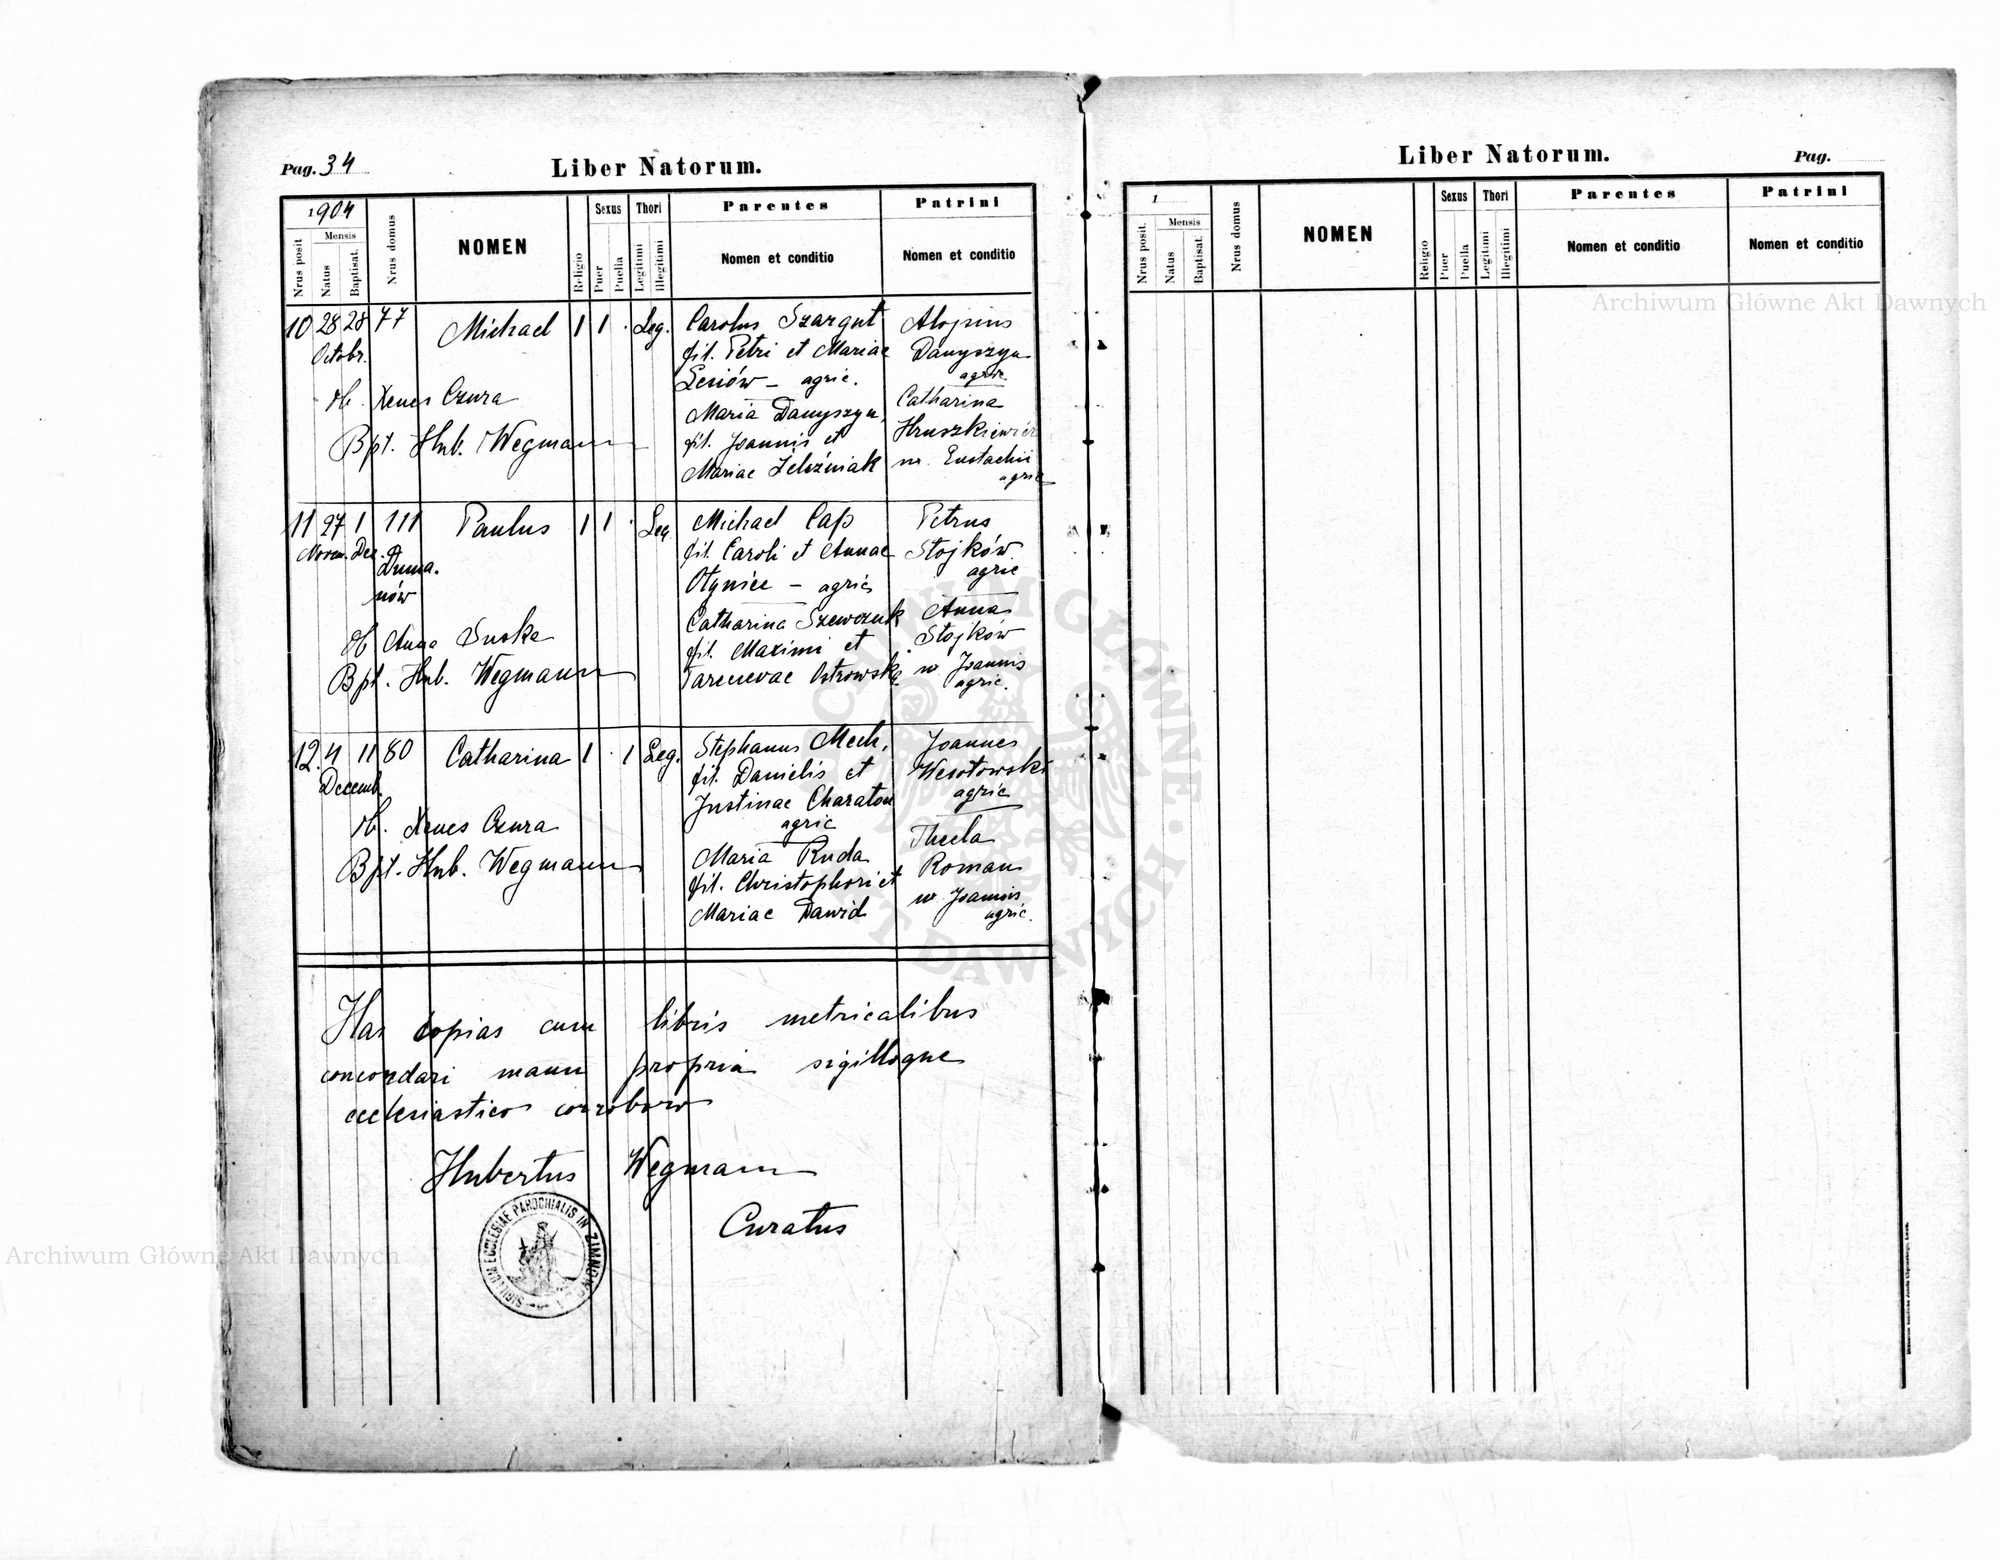 Pag. 34
Liber Natorum.
1904
Nrus posit
Mensis
Natus
Baptisat.
Nrus domus
NOMEN
Religio
Sexus
Puer
Puella
Thori
Legitimi
Illegitimi
Parentes
Nomen et conditio
Patrini
Nomen et conditio
10 28 28 77 Michael 1 1 · Leg.
Octobr.
ob. Xenes Czura
Bpt. Hub. Wegmann
Carolus Szargut
fil. Petri et Mariae
Lesiów – agric.
Maria Danyszyn,
fil. Joannis et
Mariae Żeleźniak
Alojsius
Danyszyn
agric
Catharina
Hruszkiewicz
ux. Eustachii
agric
11 27 1 111 Paulus 1 1 · Leg.
Novem. Dez.
Duma.
nów
ob Anna Suska
Bpt. Hub. Wegmann
Michael Cap
fil. Caroli et Annae
Otyniec – agric
Catharina Szewczuk
fil. Maximi et
Parascevae Ostrowska
Petrus
Stojków
agric
Anna
Stojków
ux Joannis
agric.
12. 4 11 80 Catharina 1 · 1 Leg.
Decemb.
ob. Xenes Czura
Bpt. Hub. Wegmann
Stephanus Mech,
fil. Danielis et
Justinae Charaton
agric
Maria Ruda
fil. Christophori et
Mariae Dawid
Joannes
Wesołowski
agric
Thecla
Roman
ux Joannis
agric.
Has copias cum libris metricalibus
concordari manu propria sigilloque
ecclesiastico corroboro
Hubertus Wegmann
Curatus
SIGILLUM ECCLESIAE PAROCHIALIS IN ZIMNO
Liber Natorum.
Pag.
1
Nrus posit.
Mensis
Natus
Baptisat.
Nrus domus
NOMEN
Religio
Sexus
Puer
Puella
Thori
Legitimi
Illegitimi
Parentes
Nomen et conditio
Patrini
Nomen et conditio
Archiwum Główne Akt Dawnych
Archiwum Główne Akt Dawnych